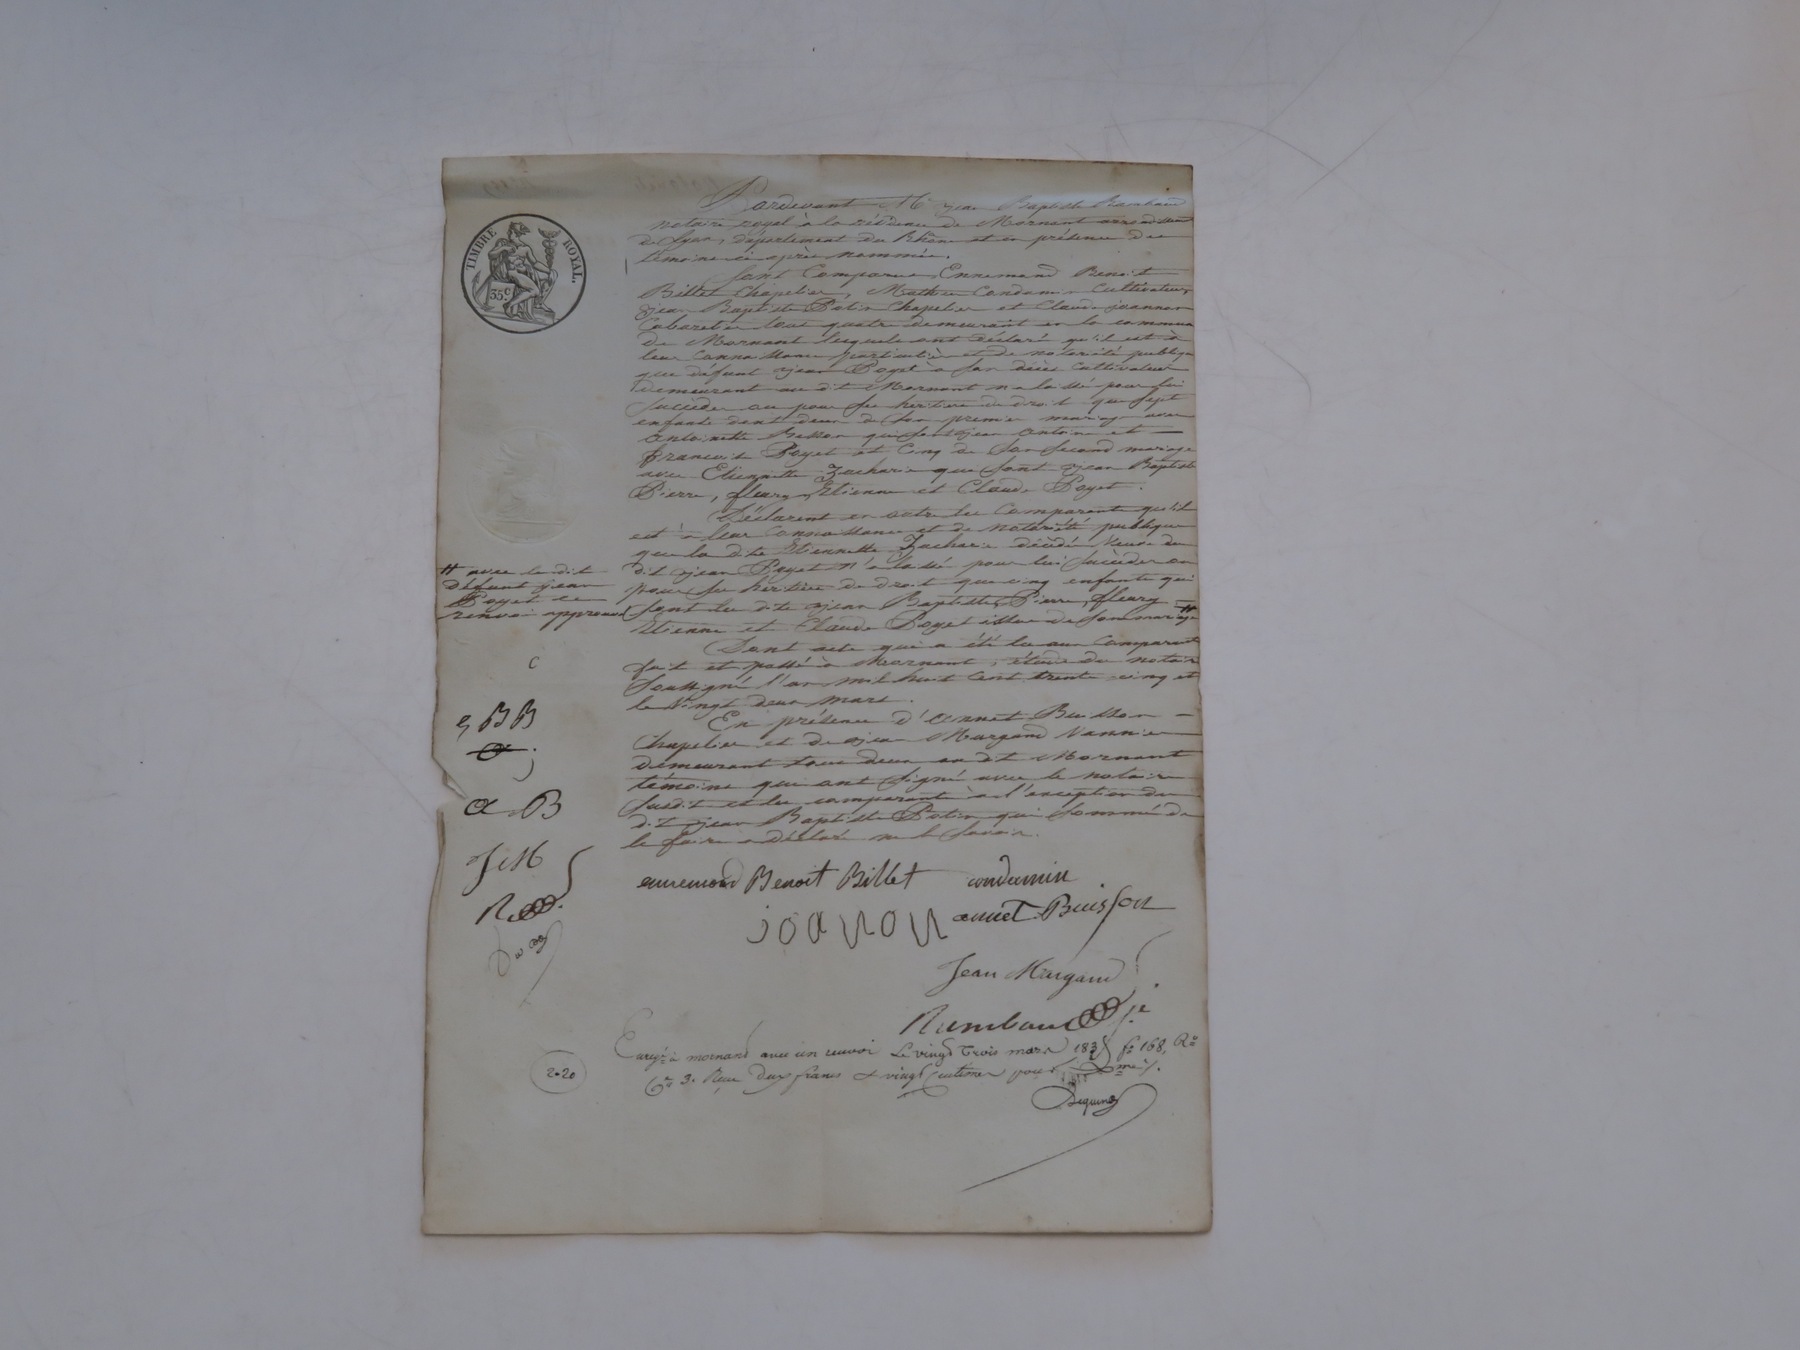 TIMBRE ROYAL.
35 c
Pardevant Me Jean Baptiste Rambaud
notaire royal à la résidence de Mornant arrondissem
de Lyon, département du Rhône et en présence des
témoins ci après nommés.
Sont Comparus, Ennemond Benoit
Billet Chapelier, Mathieu Condamin Cultivateur,
Jean Baptiste Potin Chapelier et Claude joannon
Cabaretier tous quatre demeurant en la commune
de Mornant lesquels ont déclaré qu'il est à
leur Connaissance particulière et de notoriété publique
que défunt Jean Poyet à son décès Cultivateur
demeurant au dit Mornant n'a laissé pour lui
Succéder ou pour ses héritiers de droit que sept
enfants dont deux de son premier mariage avec
Antoinette Besson qui sont Jean Antoine et
François Poyet et Cinq de son Second mariage
avec Etiennette Zacharie que sont Jean Baptiste
Pierre, fleury, Etienne et Claude Poyet.
Déclarent en outre les Comparants qu'il
est à leur Connaissance et de notoriété publique
que la dite Etiennette Zacharie décédée Veuve du
dit Jean Poyet n'a laissé pour lui Succéder ou
pour ses héritiers de droit que cinq enfants qui
sont les dits Jean Baptiste, Pierre, fleury
Etienne et Claude Poyet issus de Son mariage #
# avec le dit
défunt Jean
Poyet ce
renvoi approuvé
Dont acte qui a été lu aux Comparants
fait et passé à Mornant, étude du notaire
Soussigné l'an mil huit Cent trente cinq et
le Vingt deux mars.
En présence d'Annet Buisson
Chapelier et de Jean Margand Vannier
demeurant tous deux au dit Mornant
témoins qui ont Signé avec le notaire
susdit et les comparants à l'exception du
dit Jean Baptiste Potin qui Sommé de
le faire a déclaré ne le Savoir.
C
E BB
a B
J M
R
ennemond Benoit Billet condamin
joanon annet Buisson
Jean Margand
Rambaud
Enregé à mornand avec un renvoi Le vingt trois mars 1835 fo 168, Ro
Ce 3. Reçu deux francs & vingt Centimes pour
2=20